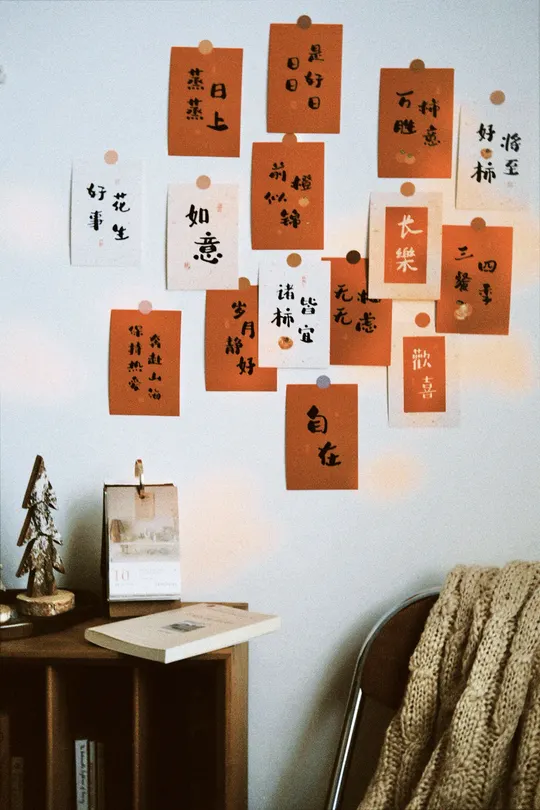 日日
是好日
蒸蒸
日上
万柿
胜意
好柿
将至
前橙
似锦
好事
花生
如意
长樂
三餐
四季
诸柿
皆宜
岁月
静好
保持热爱
奔赴山海
歡喜
自在
10